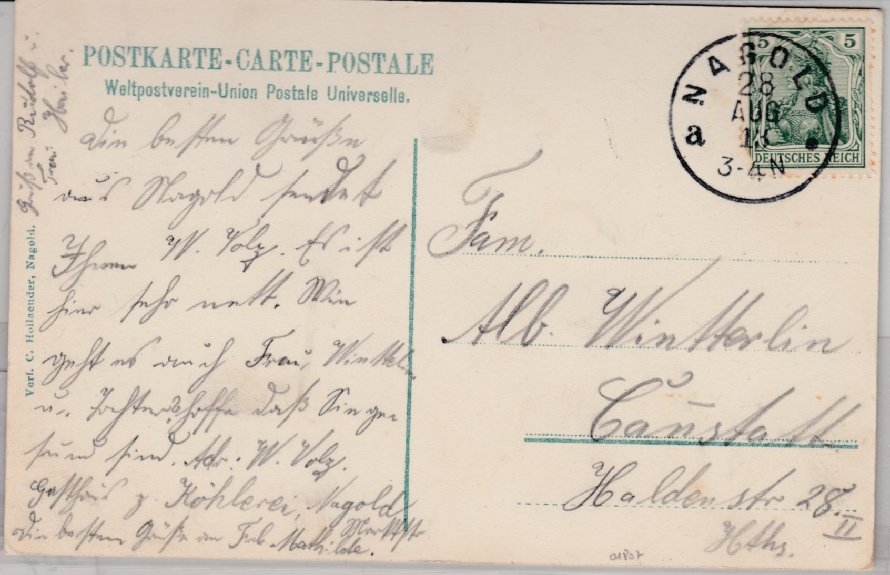 POSTKARTE-CARTE-POSTALE
Weltpostverein-Union Postale Universelle.
Die besten Grüße
aus Nagold sendet
Ihnen W. Volz. Es ist
hier sehr nett. Wie
geht es auch Frau Winterlin
u. Tochter, hoffe daß Sie ge-
sund sind. Adr: W. Volz.
Gasthaus z. Köhlerei, Nagold
Marktstr
Die besten Grüße an Frl. Mathilde.
Grüße an Rudolf u.
Frau
Verl. C. Hollaender, Nagold.
NAGOLD
28
AUG
3-4N
a
5 5
DEUTSCHES REICH
Fam.
Alb. Wintterlin
Canstatt
Haldenstr 28 II
Hths.
01807